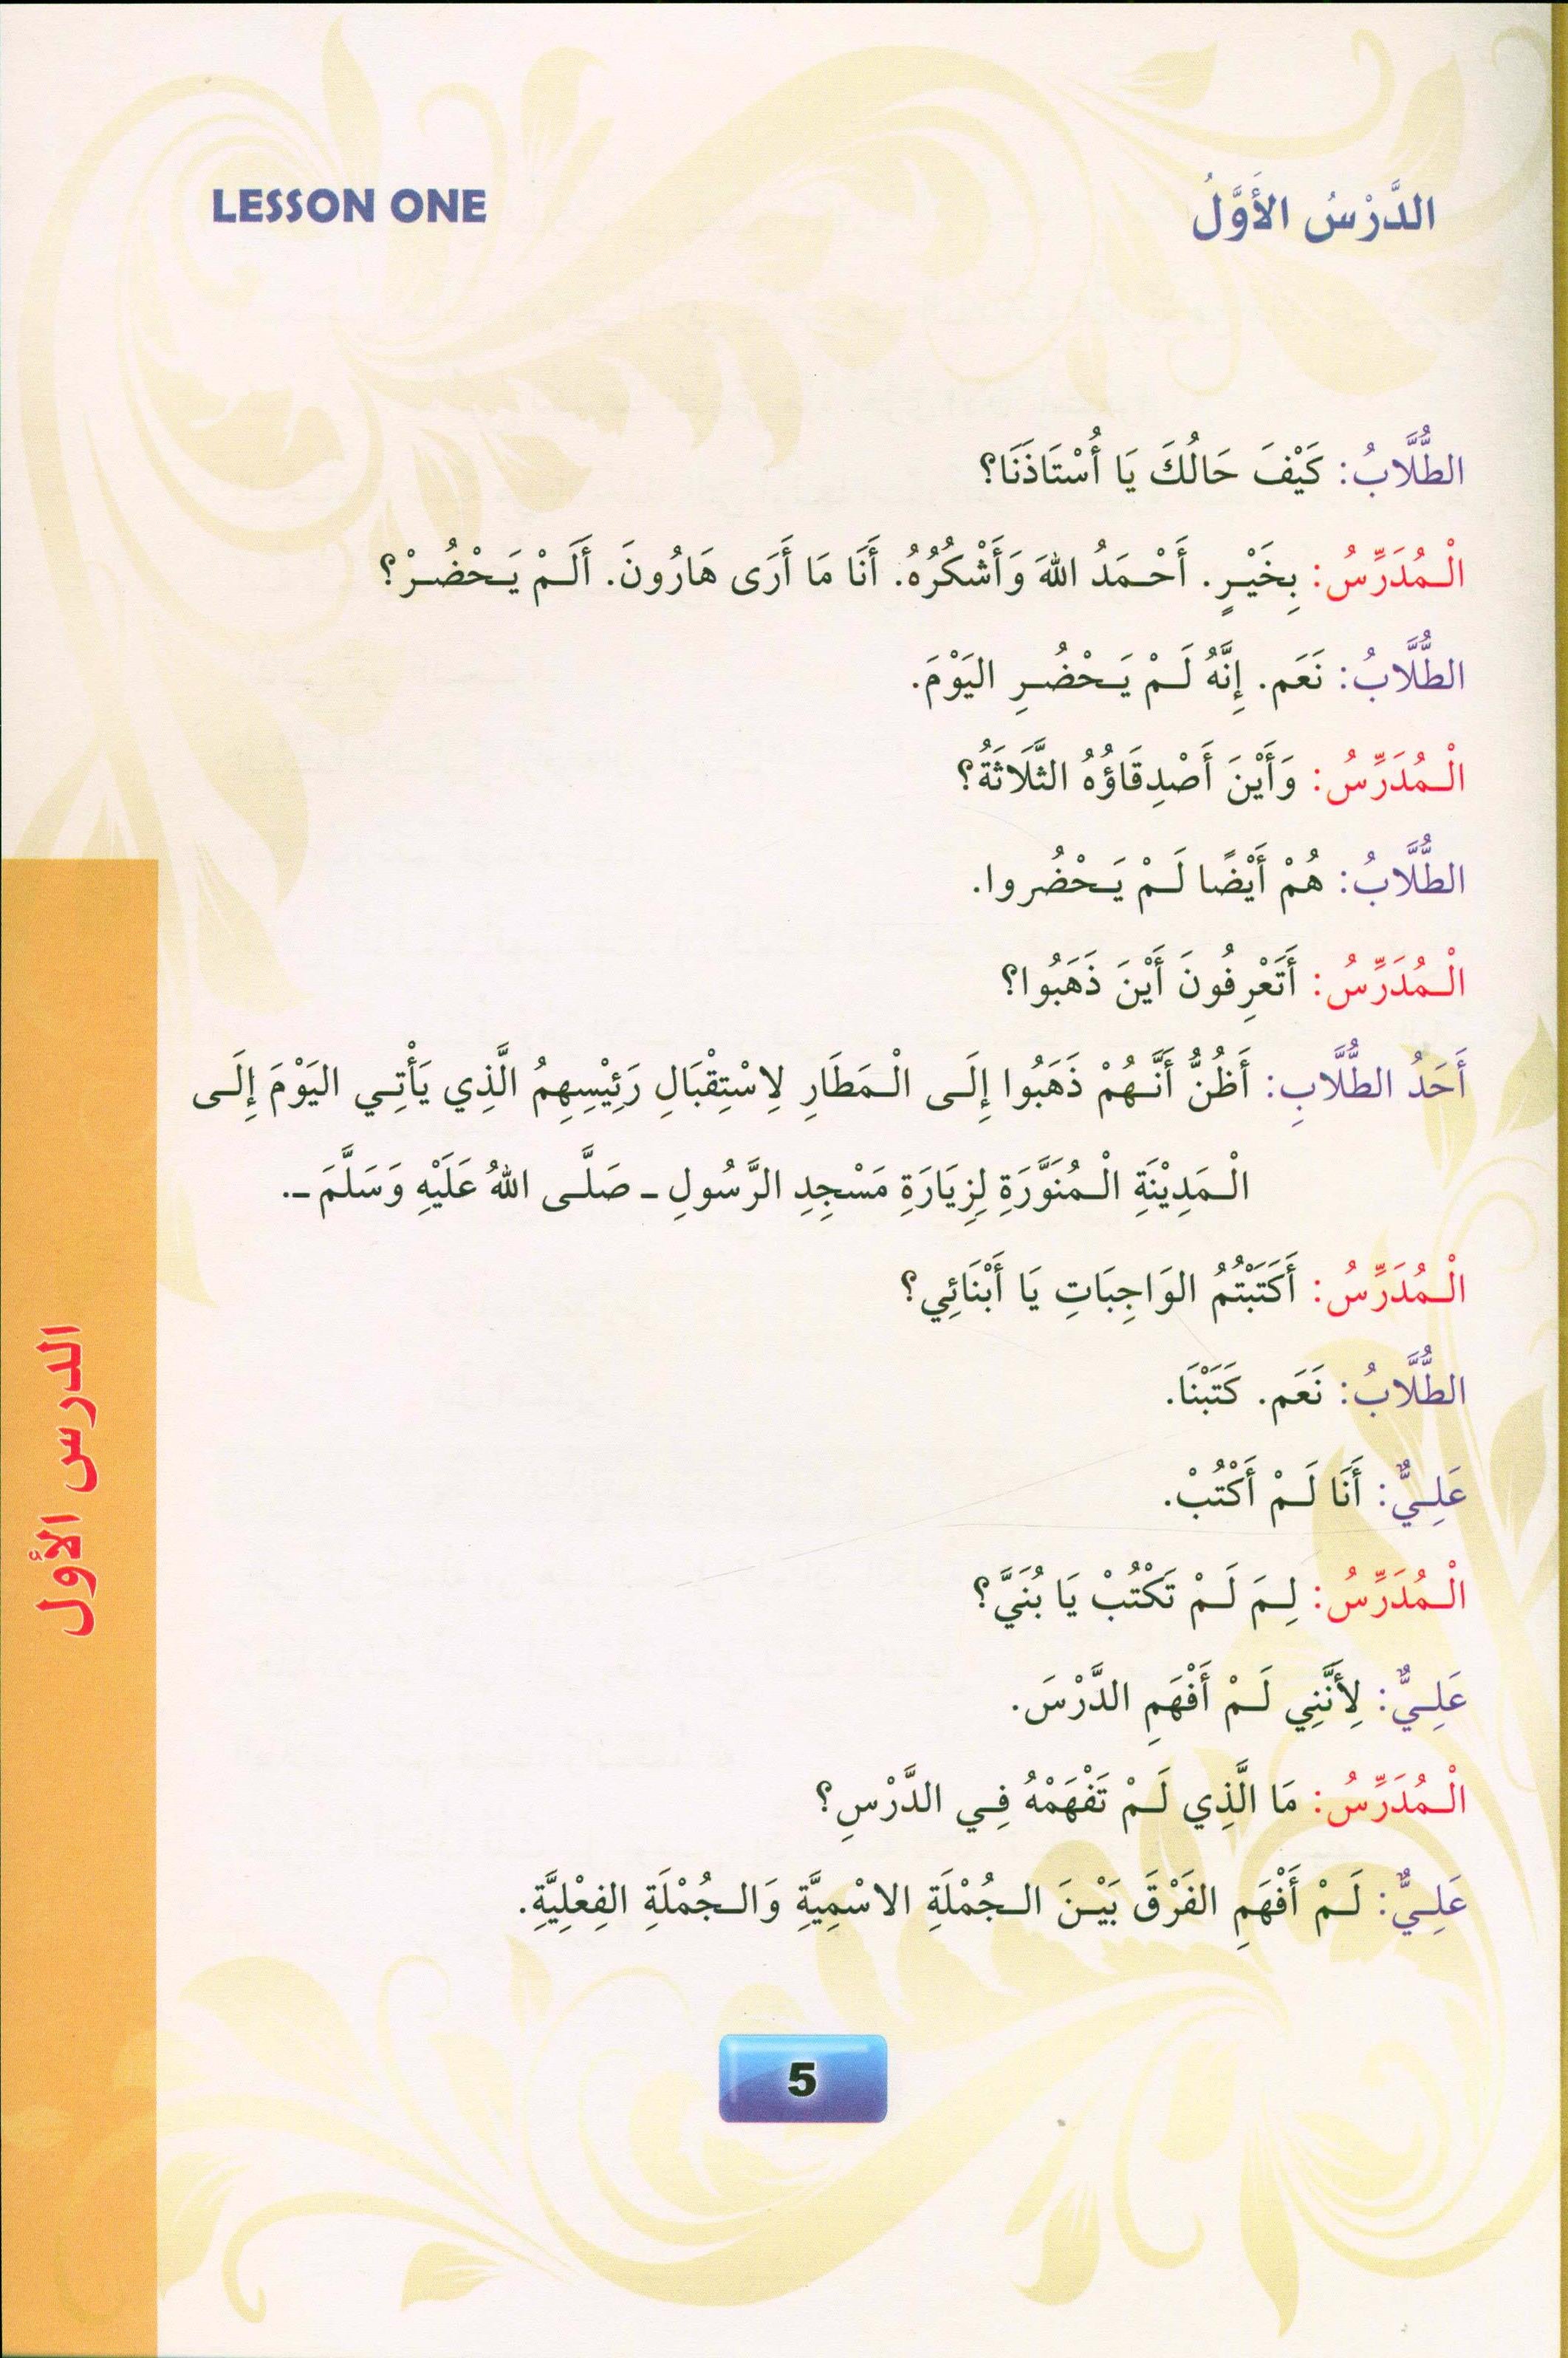 LESSON ONE
الدَّرْسُ الأَوَّلُ
الطُّلَّابُ: كَيْفَ حَالُكَ يَا أُسْتَاذَنَا؟
الْـمُدَرِّسُ: بِخَيْـرٍ. أَحْـمَدُ اللهَ وَأَشْكُرُهُ. أَنَا مَا أَرَى هَارُونَ. أَلَـمْ يَـحْضُـرْ؟
الطُّلَّابُ: نَعَم. إِنَّهُ لَـمْ يَـحْضُـرِ اليَوْمَ.
الْـمُدَرِّسُ: وَأَيْنَ أَصْدِقَاؤُهُ الثَّلَاثَةُ؟
الطُّلَّابُ: هُمْ أَيْضًا لَـمْ يَـحْضُروا.
الْـمُدَرِّسُ: أَتَعْرِفُونَ أَيْنَ ذَهَبُوا؟
أَحَدُ الطُّلَّابِ: أَظُنُّ أَنَّـهُمْ ذَهَبُوا إِلَـى الْـمَطَارِ لِاسْتِقْبَالِ رَئِيْسِهِمُ الَّذِي يَأْتِـي اليَوْمَ إِلَـى
الْـمَدِيْنَةِ الْـمُنَوَّرَةِ لِزِيَارَةِ مَسْجِدِ الرَّسُولِ ـ صَلَّـى اللهُ عَلَيْهِ وَسَلَّمَ ـ.
الْـمُدَرِّسُ: أَكَتَبْتُمُ الوَاجِبَاتِ يَا أَبْنَائِي؟
الطُّلَّابُ: نَعَم. كَتَبْنَا.
عَلِـيٌّ: أَنَا لَـمْ أَكْتُبْ.
الْـمُدَرِّسُ: لِـمَ لَـمْ تَكْتُبْ يَا بُنَيَّ؟
عَلِـيٌّ: لِأَنَّنِي لَـمْ أَفْهَمِ الدَّرْسَ.
الْـمُدَرِّسُ: مَا الَّذِي لَـمْ تَفْهَمْهُ فِـي الدَّرْسِ؟
عَلِـيٌّ: لَـمْ أَفْهَمِ الفَرْقَ بَيْـنَ الـجُمْلَةِ الاسْمِيَّةِ وَالـجُمْلَةِ الفِعْلِيَّةِ.
الدرس الأول
5